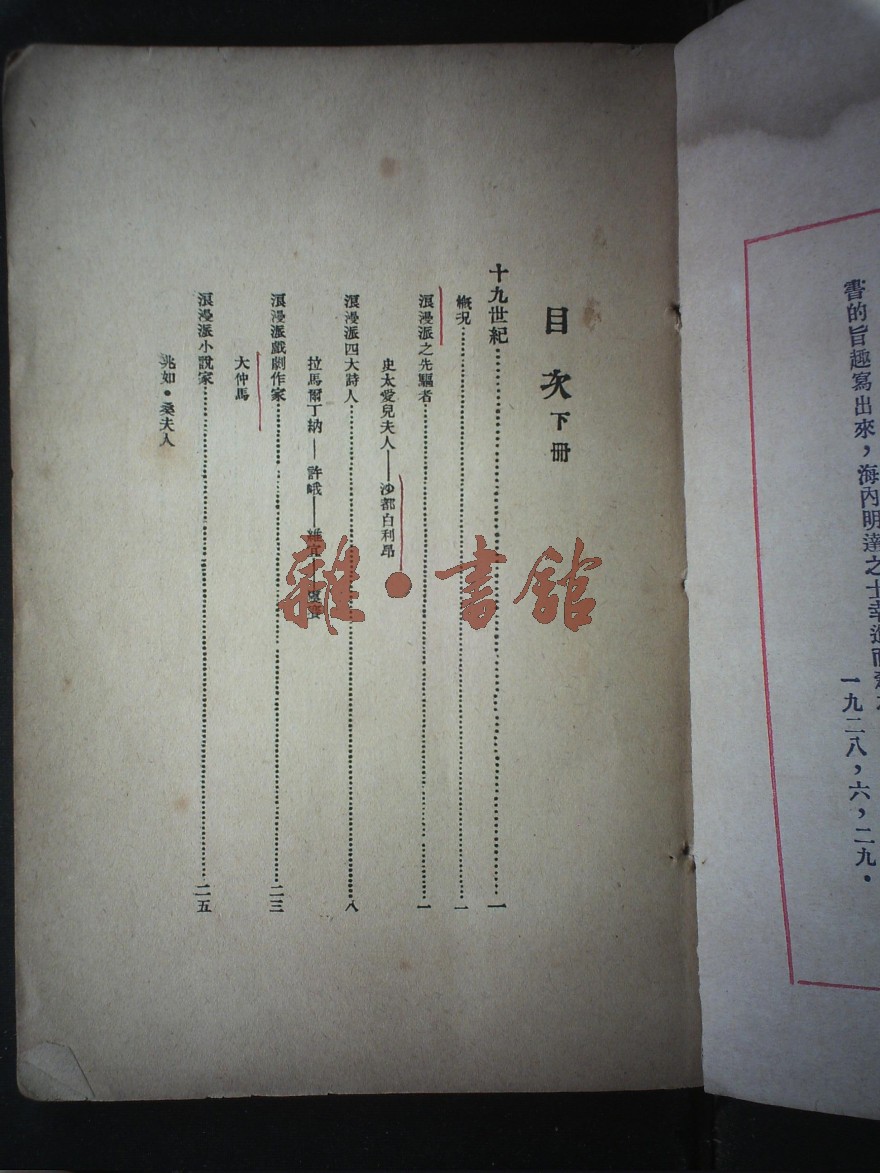 書的旨趣寫出來，海內明達之士幸進而
一九二八，六，二九。
目次下冊
十九世紀……一
概況……一
浪漫派之先驅者……一
史太愛兒夫人——沙都白利昂
浪漫派四大詩人……八
拉馬爾丁納——許峨——維
浪漫派戲劇作家……二三
大仲馬
浪漫派小說家……二五
兆如·桑夫人
雜·書館